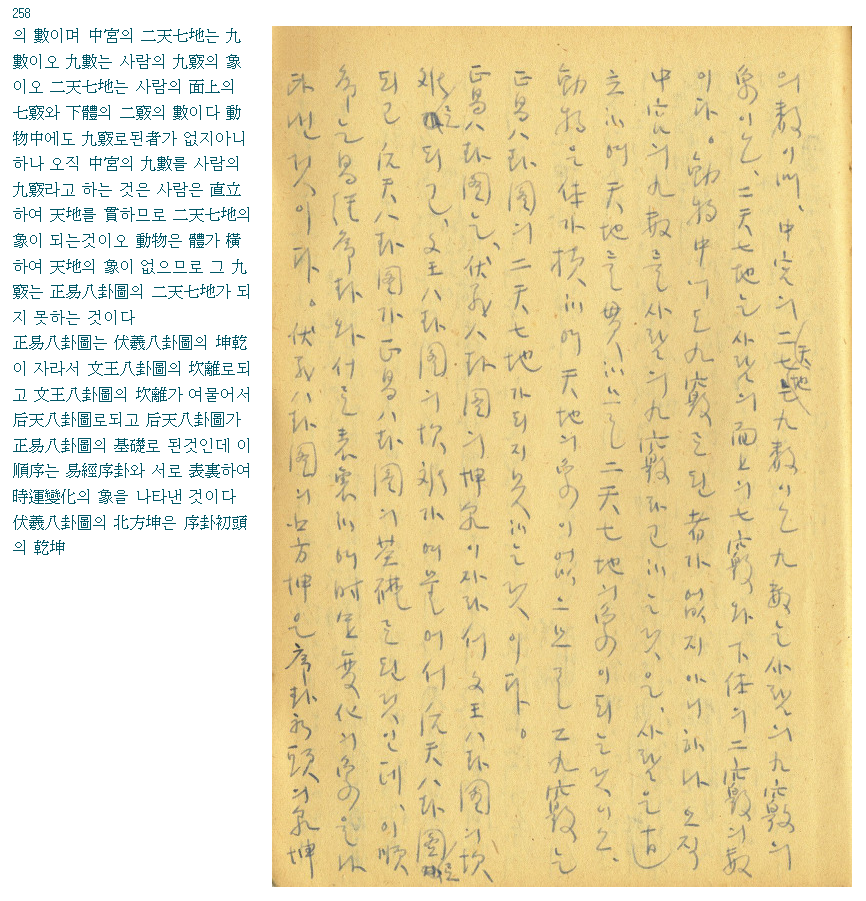 258
의 數이며 中宮의 二天七地는 九
數이오 九數는 사람의 九竅의 象
이오 二天七地는 사람의 面上의
七竅와 下體의 二竅의 數이다 動
物中에도 九竅로된者가 없지아니
하나 오직 中宮의 九數를 사람의
九竅라고 하는 것은 사람은 直立
하여 天地를 貫하므로 二天七地의
象이 되는것이오 動物은 體가 橫
하여 天地의 象이 없으므로 그 九
竅는 正易八卦圖의 二天七地가 되
지 못하는 것이다
正易八卦圖는 伏羲八卦圖의 坤乾
이 자라서 文王八卦圖의 坎離로되
고 文王八卦圖의 坎離가 여물어서
后天八卦圖로되고 后天八卦圖가
正易八卦圖의 基礎로 된것인데 이
順序는 易經序卦와 서로 表裏하여
時運變化의 象을 나타낸 것이다
伏羲八卦圖의 北方坤은 序卦初頭
의 乾坤
의 數이며, 中宮의 二天七地는 九數이오 九數는 사람의 九竅의
象이오, 二天七地는 사람의 面上의 七竅와 下体의 二竅의 數
이다。動物中에도 九竅로된 者가 없지아니하나 오직
中宮의 九數를 사람의 九竅라고 하는 것은, 사람은 直
立하여 天地를 貫하므로 二天七地의 象이 되는것이오,
動物은 体가 横하여 天地의 象이 없으므로 그 九竅는
正易八卦圖의 二天七地가 되지 못하는 것이다。
正易八卦圖는, 伏羲八卦圖의 坤乾이 자라서 文王八卦圖의 坎
離로 되고, 文王八卦圖의 坎離가 여물어서 后天八卦圖로
되고 后天八卦圖가 正易八卦圖의 基礎로 된것인데, 이 順
序는 易經序卦와 서로 表裏하여 時運變化의 象을 나
타낸 것이다。伏羲八卦圖의 北方坤은 序卦初頭의 乾坤